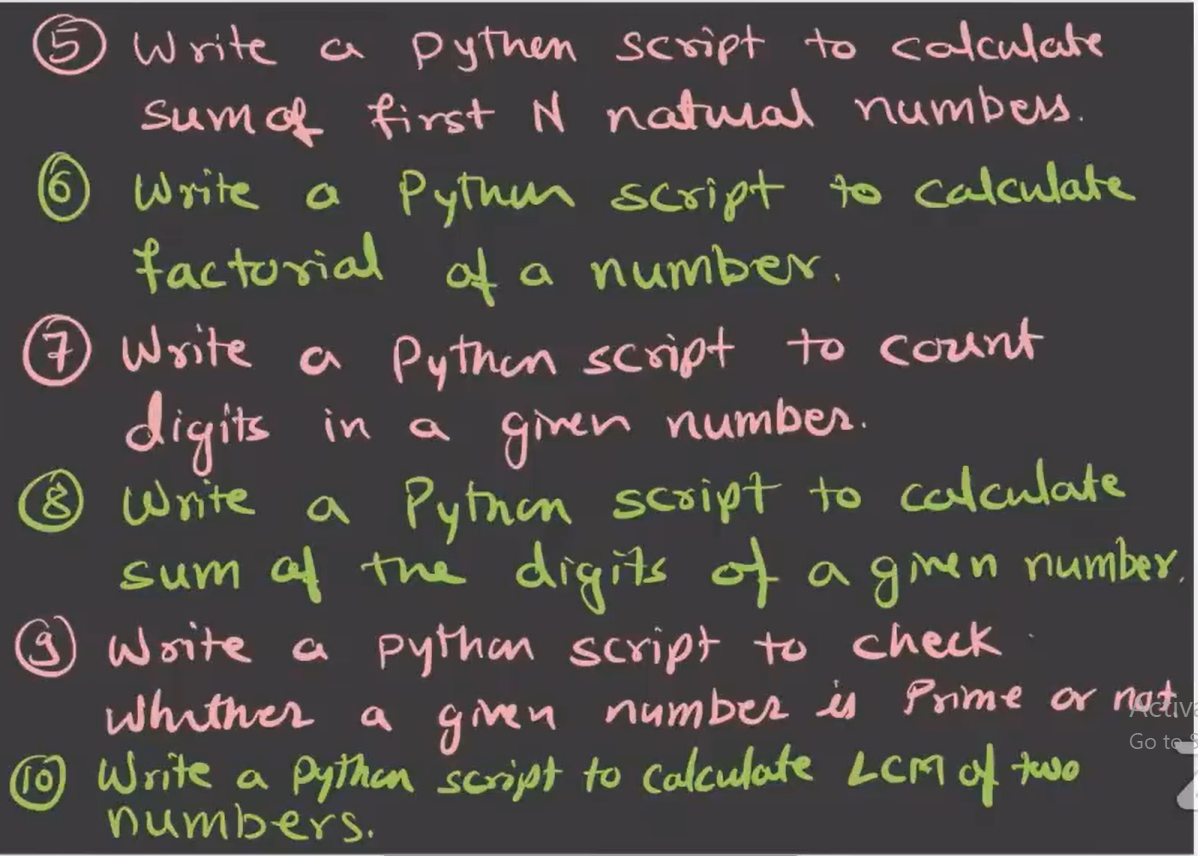 5 Write a python script to calculate
sum of first N natural numbers.
6 Write a Python script to calculate
factorial of a number.
7 Write a Python script to count
digits in a given number.
8 Write a Python script to calculate
sum of the digits of a given number.
9 Write a python script to check
whether a given number is Prime or not
Activa
Go to S
10 Write a python script to calculate LCM of two
numbers.